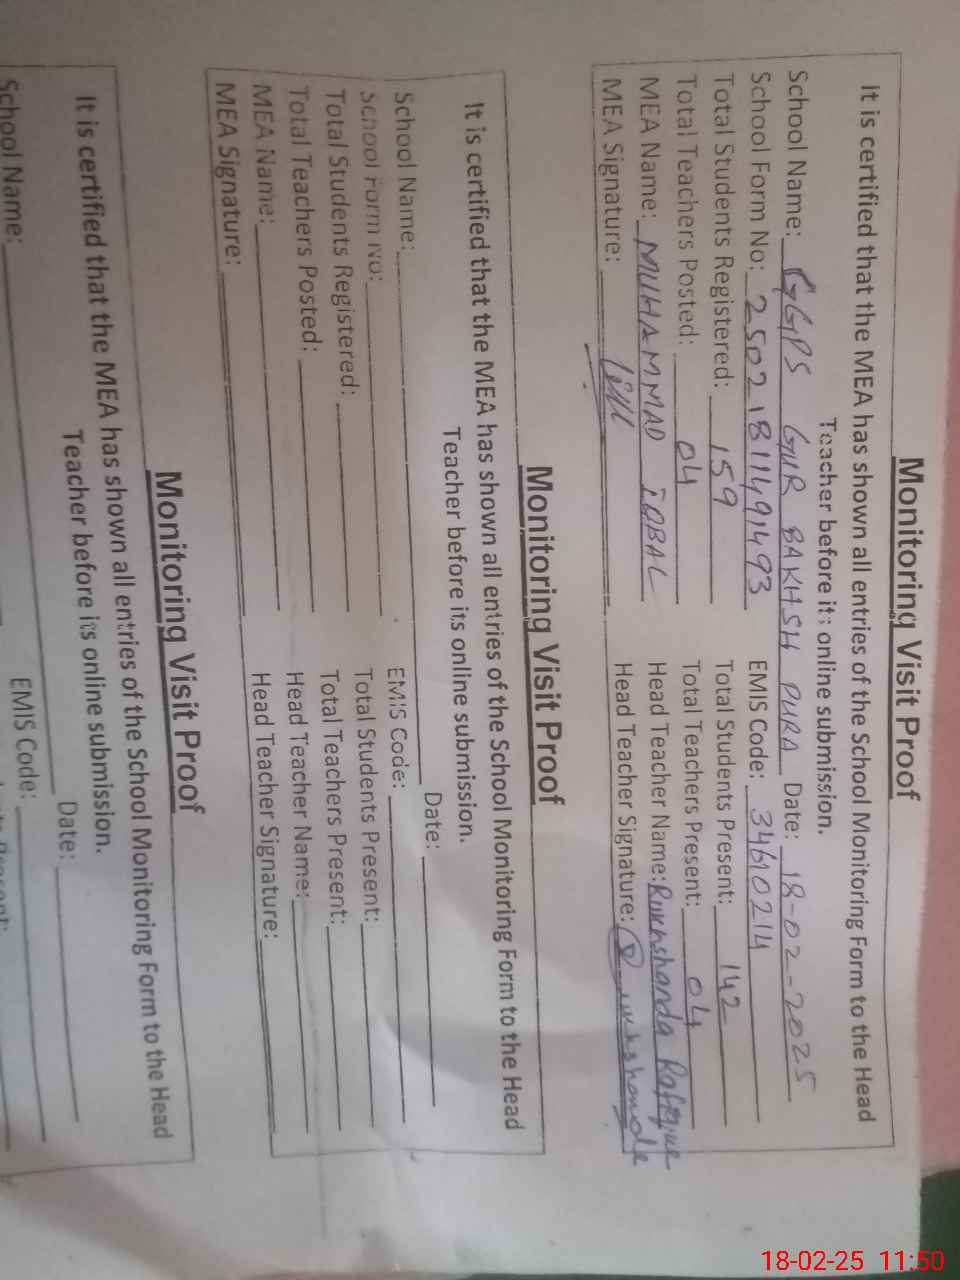 Monitoring Visit Proof
It is certified that the MEA has shown all entries of the School Monitoring Form to the Head
Teacher before its online submission.
School Name: GGPS GUR BAKHSH PURA Date: 18-02-2025
School Form No: 25021811491493 EMIS Code: 34610214
Total Students Registered: 159 Total Students Present: 142
Total Teachers Posted: 04 Total Teachers Present: 04
MEA Name: MUHAMMAD IQBAL Head Teacher Name: Rukhshanda Rafique
MEA Signature: Head Teacher Signature: Rukhshanda
Monitoring Visit Proof
It is certified that the MEA has shown all entries of the School Monitoring Form to the Head
Teacher before its online submission.
School Name: Date:
School Form No: EMIS Code:
Total Students Registered: Total Students Present:
Total Teachers Posted: Total Teachers Present:
MEA Name: Head Teacher Name:
MEA Signature: Head Teacher Signature:
Monitoring Visit Proof
It is certified that the MEA has shown all entries of the School Monitoring Form to the Head
Teacher before its online submission.
School Name: Date:
EMIS Code:
18-02-25 11:50